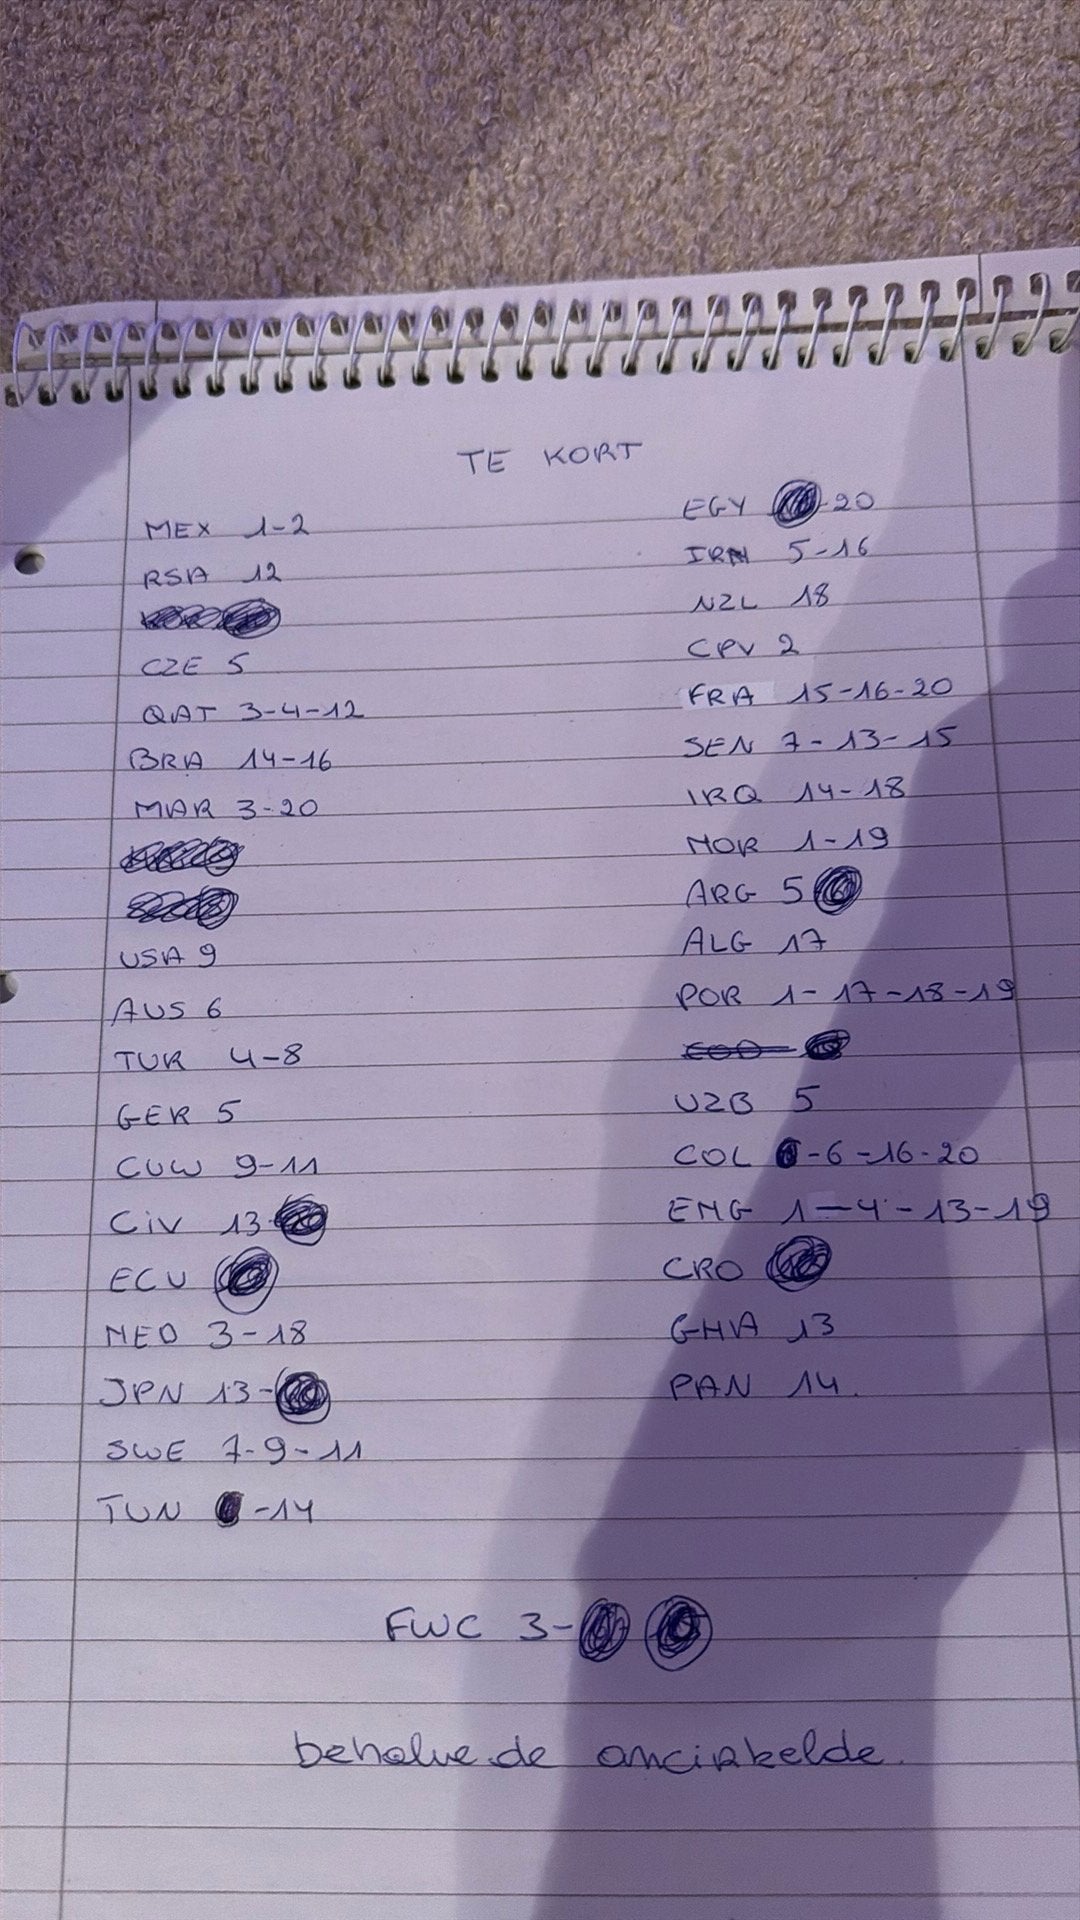 TE KORT
MEX 1-2
RSA 12
CZE 5
QAT 3-4-12
BRA 14-16
MAR 3-20
USA 9
AUS 6
TUR 4-8
GER 5
CUW 9-11
CiV 13-
ECU
NED 3-18
JPN 13-
SWE 7-9-11
TUN -14
EGY -20
IRN 5-16
NZL 18
CPV 2
FRA 15-16-20
SEN 7-13-15
IRQ 14-18
NOR 1-19
ARG 5
ALG 17
POR 1-17-18-19
UZB 5
COL -6-16-20
ENG 1-4-13-19
CRO
GHA 13
PAN 14.
FWC 3-
behalve de omcirkelde.